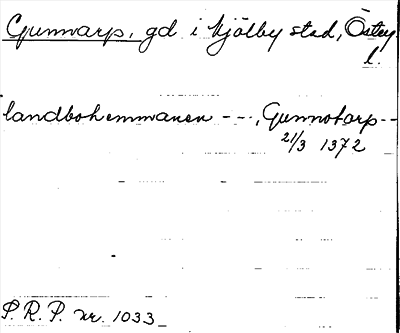 Gunnarp, gd i Mjölby stad, Östg.
l.
landbohemmanen ---, Gunnotorp --
21/3 1372
P. R. P. nr. 1033